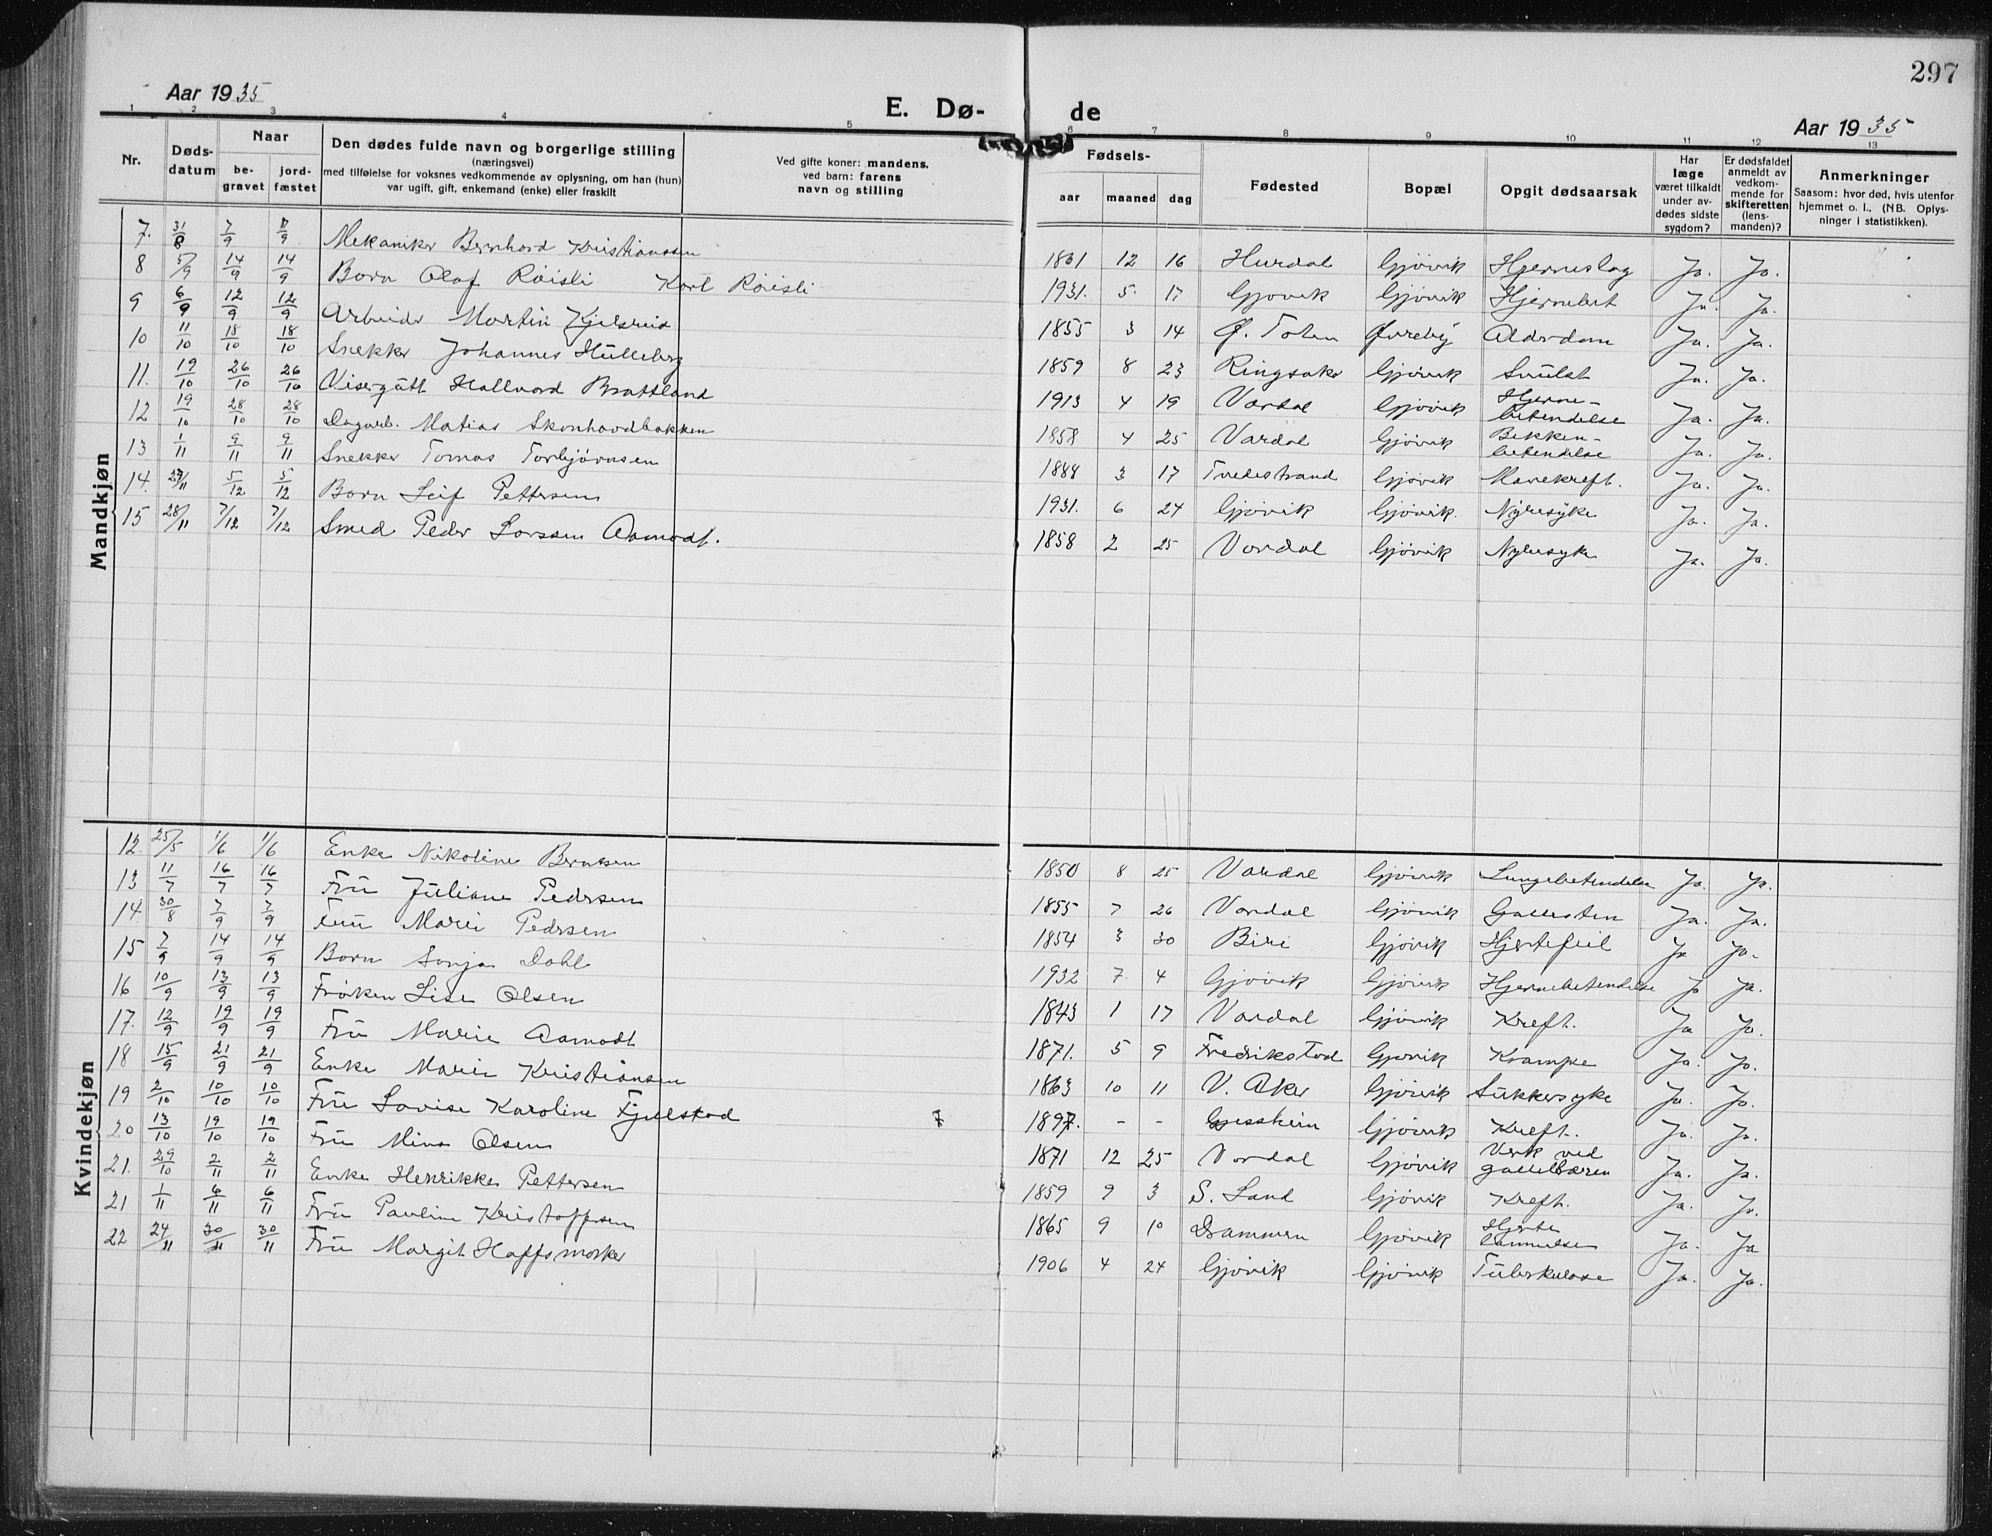 297
Aar 1935
E. Dø- de
Aar 1935
1 2 3 4 5 6 7 8 9 10 11 12 13
Nr.
Døds-datum
Naar
be-gravet
jord-fæstet
Den dødes fulde navn og borgerlige stilling
(næringsvei)
med tilføielse for voksnes vedkommende av oplysning, om han (hun)
var ugift, gift, enkemand (enke) eller fraskilt
Ved gifte koner: mandens.
ved barn: farens
navn og stilling
Fødsels-
aar maaned dag
Fødested
Bopæl
Opgit dødsaarsak
Har læge været tilkaldt under av-dødes sidste sygdom?
Er dødsfaldet anmeldt av vedkom-mende for skifteretten (lens-manden)?
Anmerkninger
Saasom: hvor død, hvis utenfor
hjemmet o. l., (NB. Oplys-
ninger i statistikken).
Mandkjøn
7. 31/8 7/9 7/9 Mekaniker Bernhard Kristianssen 1861 12 16 Hurdal Gjøvik Hjerneslag Ja. Ja.
8 5/9 14/9 14/9 Barn Olaf Røisli Karl Røisli 1931. 5 17 Gjøvik Gjøvik Hjernebet Ja. Ja.
9 6/9 12/9 12/9 Arbeider Martin 1855 3 14 Ø. Toten Øvreby Alderdom Ja. Ja.
10 11/10 18/10 18/10 Snekker Johannes Hulleberg 1859 8 23 Ringsaker Gjøvik Ja. Ja.
11. 19/10 26/10 26/10 Visergutt Hallvard Brattland 1913 4 19 Vardal Gjøvik Hjerne-betendelse Ja. Ja.
12 19/10 28/10 28/10 Dagarb. Matias Skonhovdbakken 1858 4 25 Vardal Gjøvik Bekken-betendelse Ja. Ja.
13 1/11 9/11 9/11 Snekker Tomas Torbjørnsen 1888 3 17 Tvedestrand Gjøvik Mavekreft. Ja. Ja.
14. 27/11 5/12 5/12 Barn Leif Pettersen 1931. 6 24 Gjøvik Gjøvik. Nyresyke Ja. Ja.
15 28/11 7/12 7/12 Smed Peder Larssen Aamodt. 1858 2 25 Vardal Gjøvik Nyresyke Ja. Ja.
Kvindekjøn
12. 25/5 1/6 1/6 Enke Nikoline Berntsen 1850 8 25 Vardal Gjøvik Lungebetendelse Ja. Ja.
13 11/7 16/7 16/7 Fru Juliane Pedersen 1855 7 26 Vardal Gjøvik Gallesten Ja. Ja.
14. 30/8 7/9 7/9 Fru Marie Pedersen 1854 3 30 Biri Gjøvik Hjertefeil Ja Ja.
15 7/9 14/9 14/9 Barn Sonja Dahl 1932 7. 4 Gjøvik Gjøvik Hjernebetendelse Ja Ja.
16 10/9 13/9 13/9 Frøken Lise Olsen 1843 1 17 Vardal Gjøvik Kreft. Ja Ja.
17. 12/9 19/9 19/9 Fru Marie Aamodt 1871. 5 9 Fredrikstad Gjøvik Krampe Ja. Ja.
18 15/9 21/9 21/9 Enke Marie Kristiansen 1863 10 11 V. Aker Gjøvik Sukkersyke Ja. Ja.
19 2/10 10/10 10/10 Fru Lovise Karoline Fjelstad 7 1897. - - Gjøvik Kreft. Ja. Ja.
20 13/10 19/10 19/10 Fru Mina Olsen 1871 12 25 Vardal Gjøvik Verk ved galleblæren Ja. Ja.
21. 29/10 2/11 2/11 Enke Henrikke Pettersen 1859 9 3 S. Land Gjøvik Kreft. Ja. Ja.
21 1/11 6/11 6/11 Fru Pauline Kristoffersen 1865 9 10 Drammen Gjøvik Hjerte lammelse Ja. Ja
22 24/11 30/11 30/11 Fru Margit Haffsmarker 1906 4 24 Gjøvik Gjøvik Tuberkulose Ja. Ja.